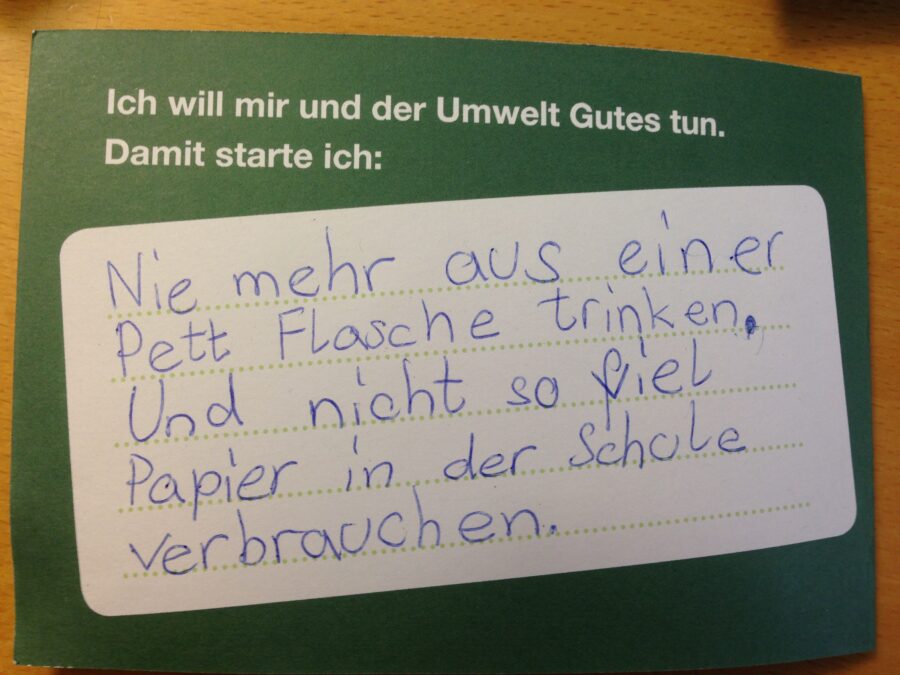 Ich will mir und der Umwelt Gutes tun.
Damit starte ich:
Nie mehr aus einer
Pett Flasche trinken.
Und nicht so viel
Papier in der Schule
verbrauchen.